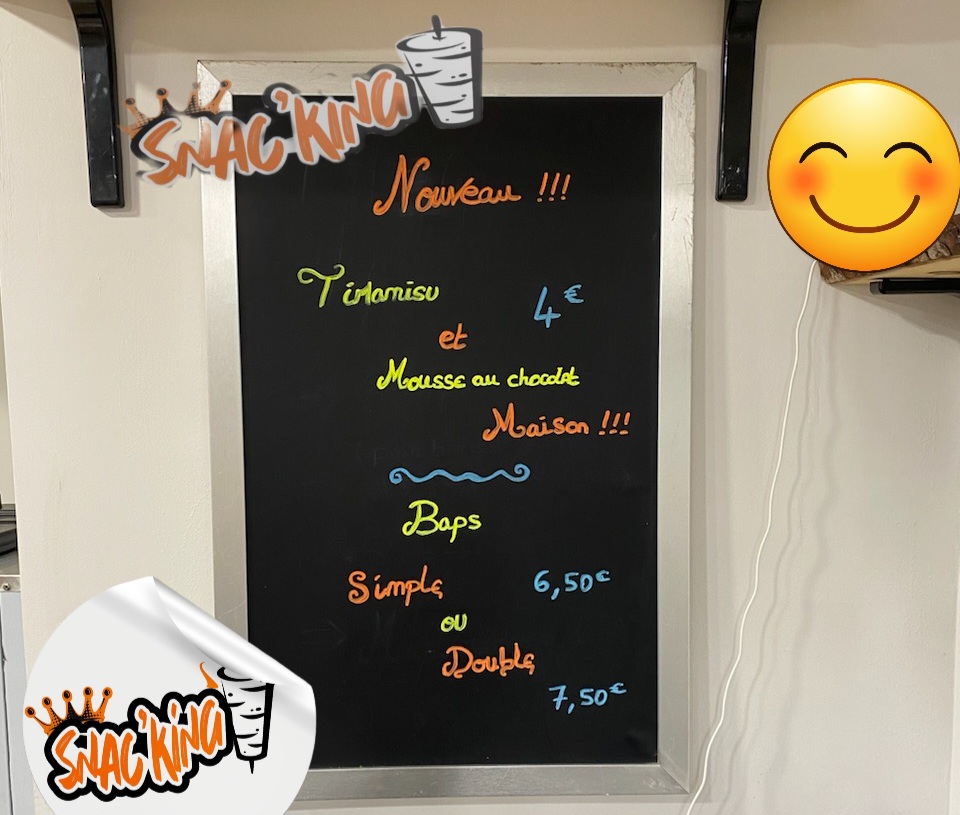 SNAC'KING
Nouveau !!!
Tiramisu 4€
et
Mousse au chocolat
Maison !!!
Baps
Simple 6,50€
ou
Double
7,50€
SNAC'KING